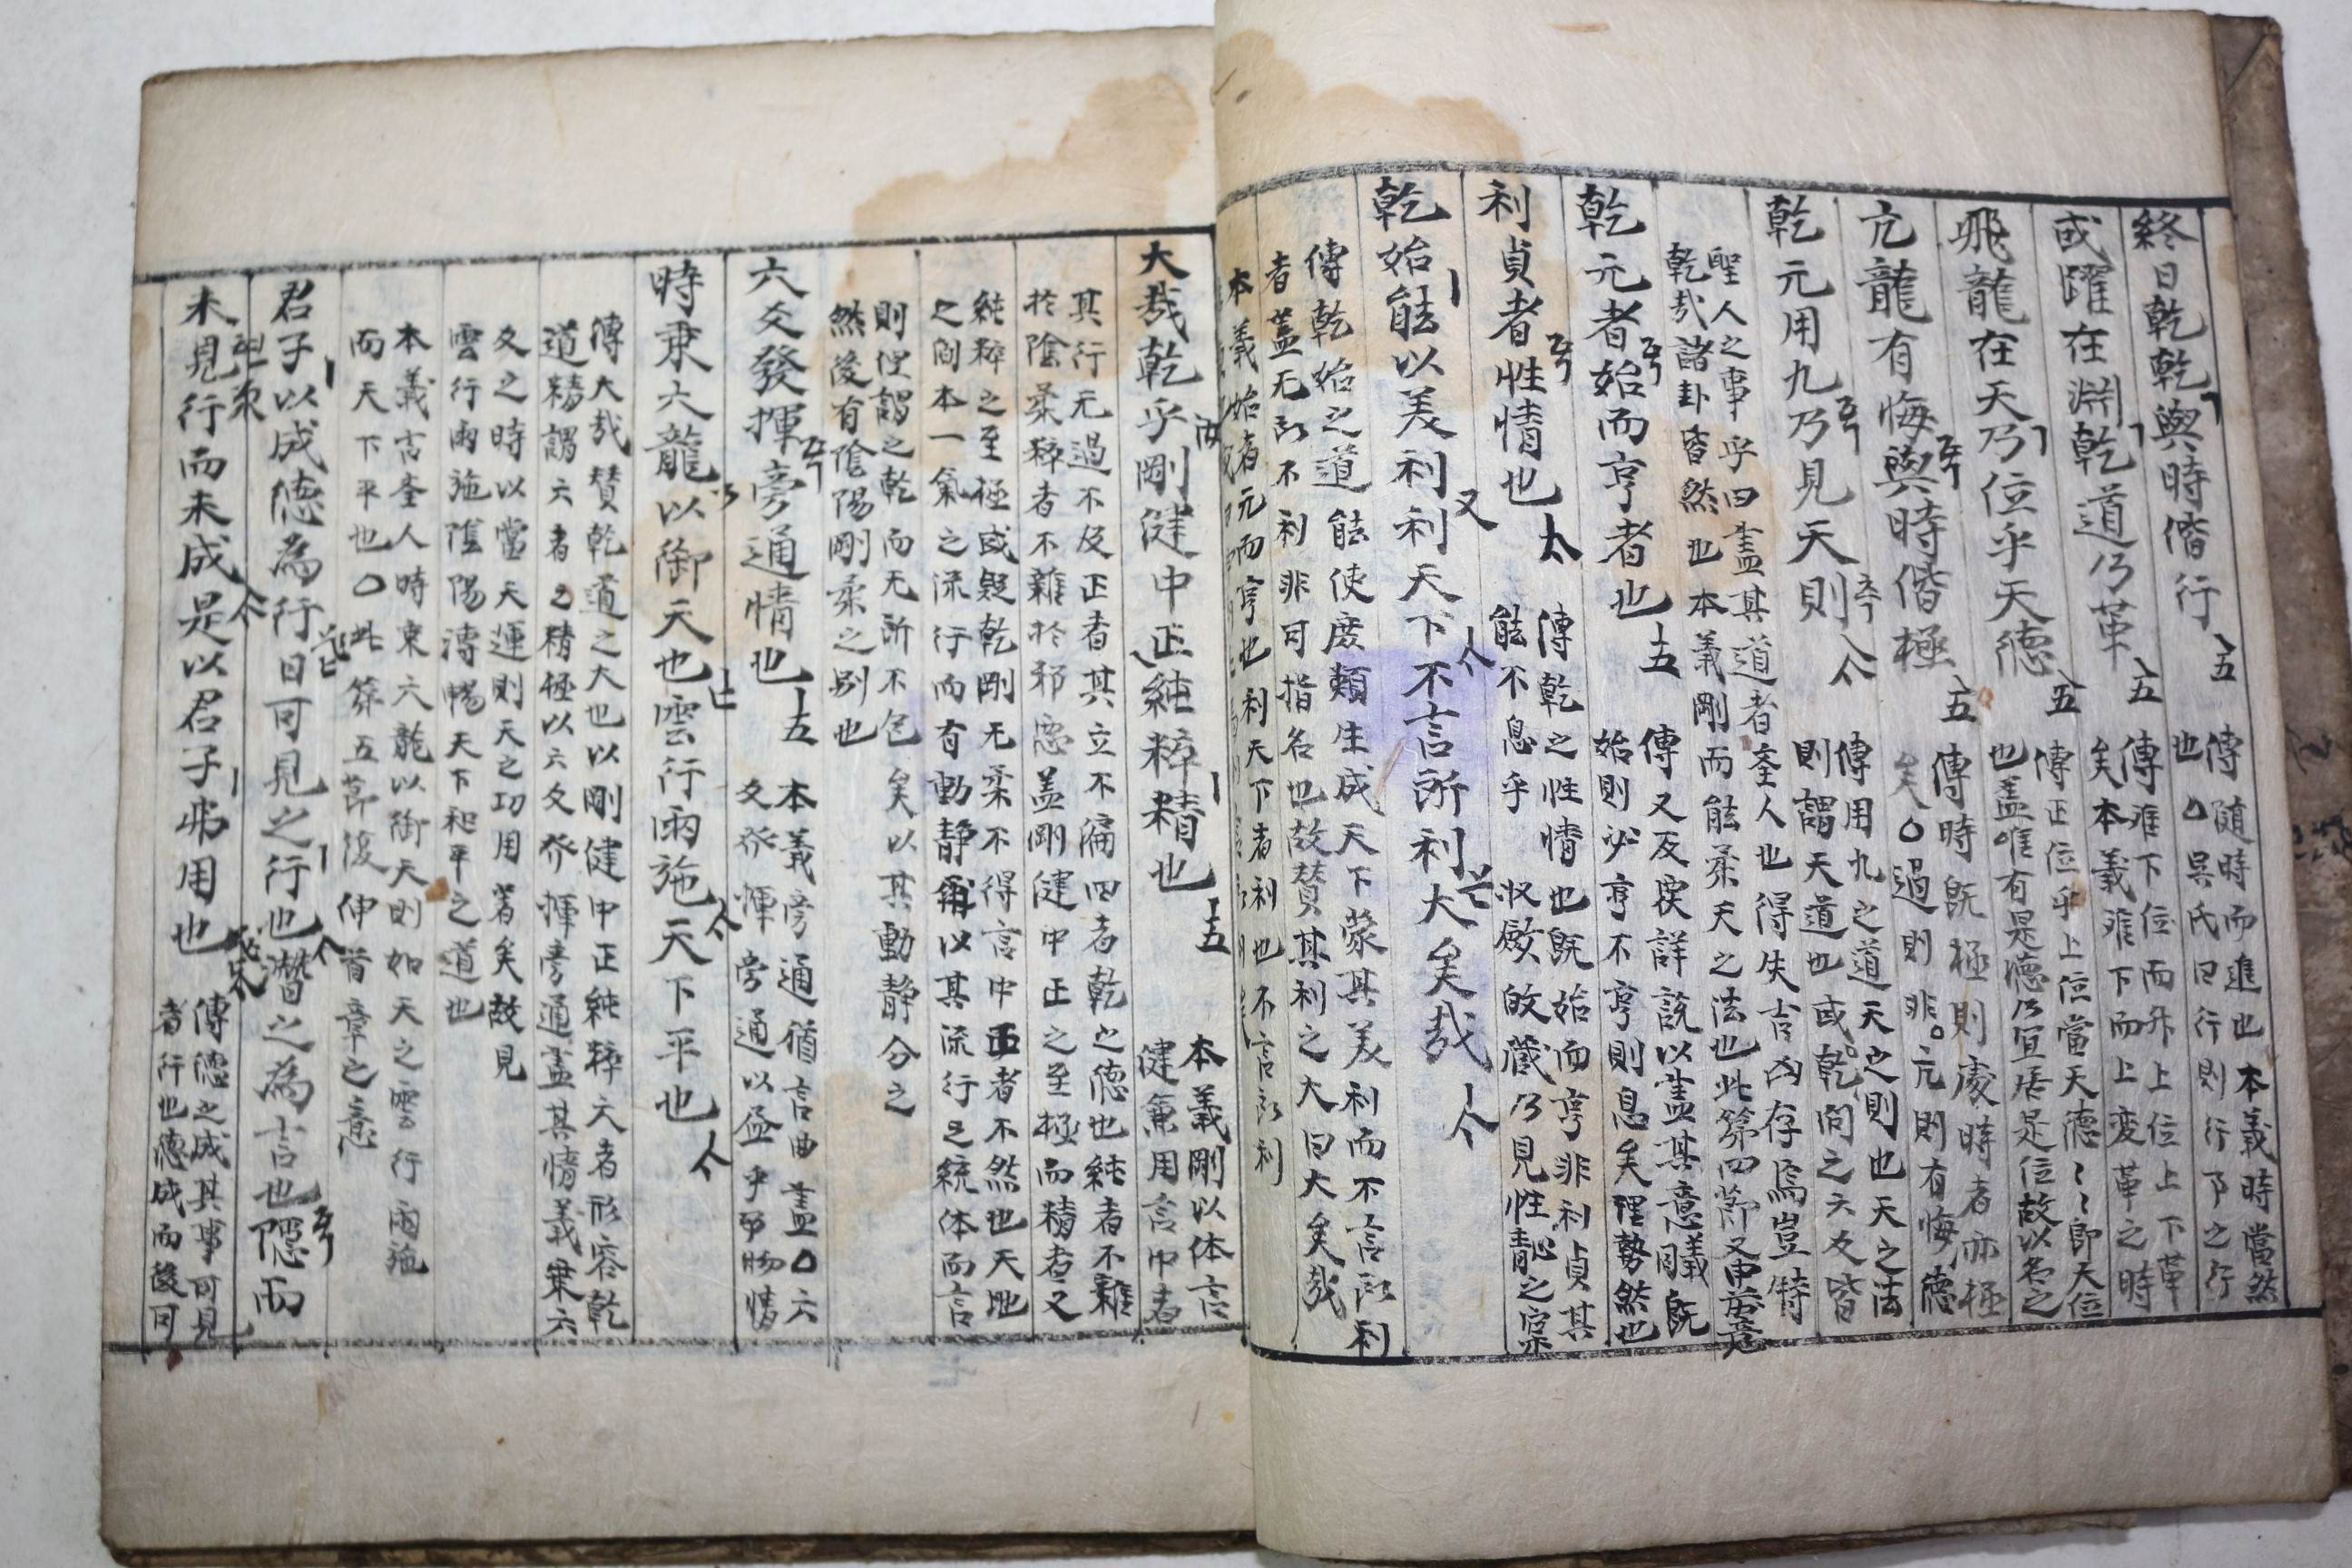 終日乾乾與時偕行
傳隨時而進也本義時當然
也○吳氏曰行則行下之行
或躍在淵乾道乃革
傳难下位而升上位上下革
矣本義难下而上变革之時
飛龍在天乃位乎天德
傳正位乎上位當天德〻即天位
也盖唯有是德乃宜居是位故以名之
亢龍有悔與時偕極
傳時既極則處時者亦極
矣○過則非。亢則有悔德
乾元用九乃見天則
傳用九之道天之則也天之法
則謂天道也或乾問之六爻皆
聖人之事乎曰盡其道者圣人也得失吉凶存焉豈特
乾哉諸卦皆然也本義剛而能柔天之法也此第四節又申前意
乾元者始而亨者也
傳又反覆詳說以盡其意義既
始則必亨不亨則息矣理勢然也
利貞者性情也
傳乾之性情也既始而亨非利貞其
能不息乎 收斂敀藏乃見性情之宲
乾始能以美利利天下不言所利大矣哉
傳乾始之道能使庶類生成天下蒙其美利而不言所利
者盖无所不利非可指名也故贊其利之大曰大矣哉
本義始者元而亨也利天下者利也不言所利
大哉乾乎剛健中正純粹精也
本義剛以体言
健兼用言中者
其行无過不及正者其立不偏四者乾之德也純者不雜
於陰柔粹者不雜於邪惡盖剛健中正之至極而精者又
純粹之至極或疑乾剛无柔不得言中正者不然也天地
之间本一氣之流行而有動静爾以其流行之統体而言
則但謂之乾而无所不包矣以其動静分之
然後有陰陽剛柔之别也
六爻發揮旁通情也
本義旁通猶言曲盡○六
爻发揮旁通以盡乎万物情
時乘六龍以御天也雲行雨施天下平也
傳大哉贊乾道之大也以剛健中正純粹六者形容乾
道精謂六者之精極以六爻发揮旁通盡其情義乘六
爻之時以當天運則天之功用著矣故見
雲行雨施陰陽溥暢天下和平之道也
本義言圣人時乘六龍以御天則如天之雲行雨施
而天下平也○此第五節復伸首章之意
君子以成德為行日可見之行也潛之為言也隱而
未見行而未成是以君子弗用也
傳德之成其事可見
者行也德成而後可